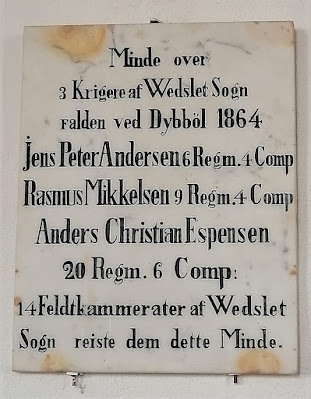 Minde over
3 Krigere af Wedslet Sogn
FALDEN VED Dybböl 1864
Jens Peter Andersen 6 Regm. 4 Comp
Rasmus Mikkelsen 9 Regm. 4 Comp
Anders Christian Espensen
20 Regm. 6 Comp:
14 Feldtkammerater af Wedslet
Sogn reiste dem dette Minde.